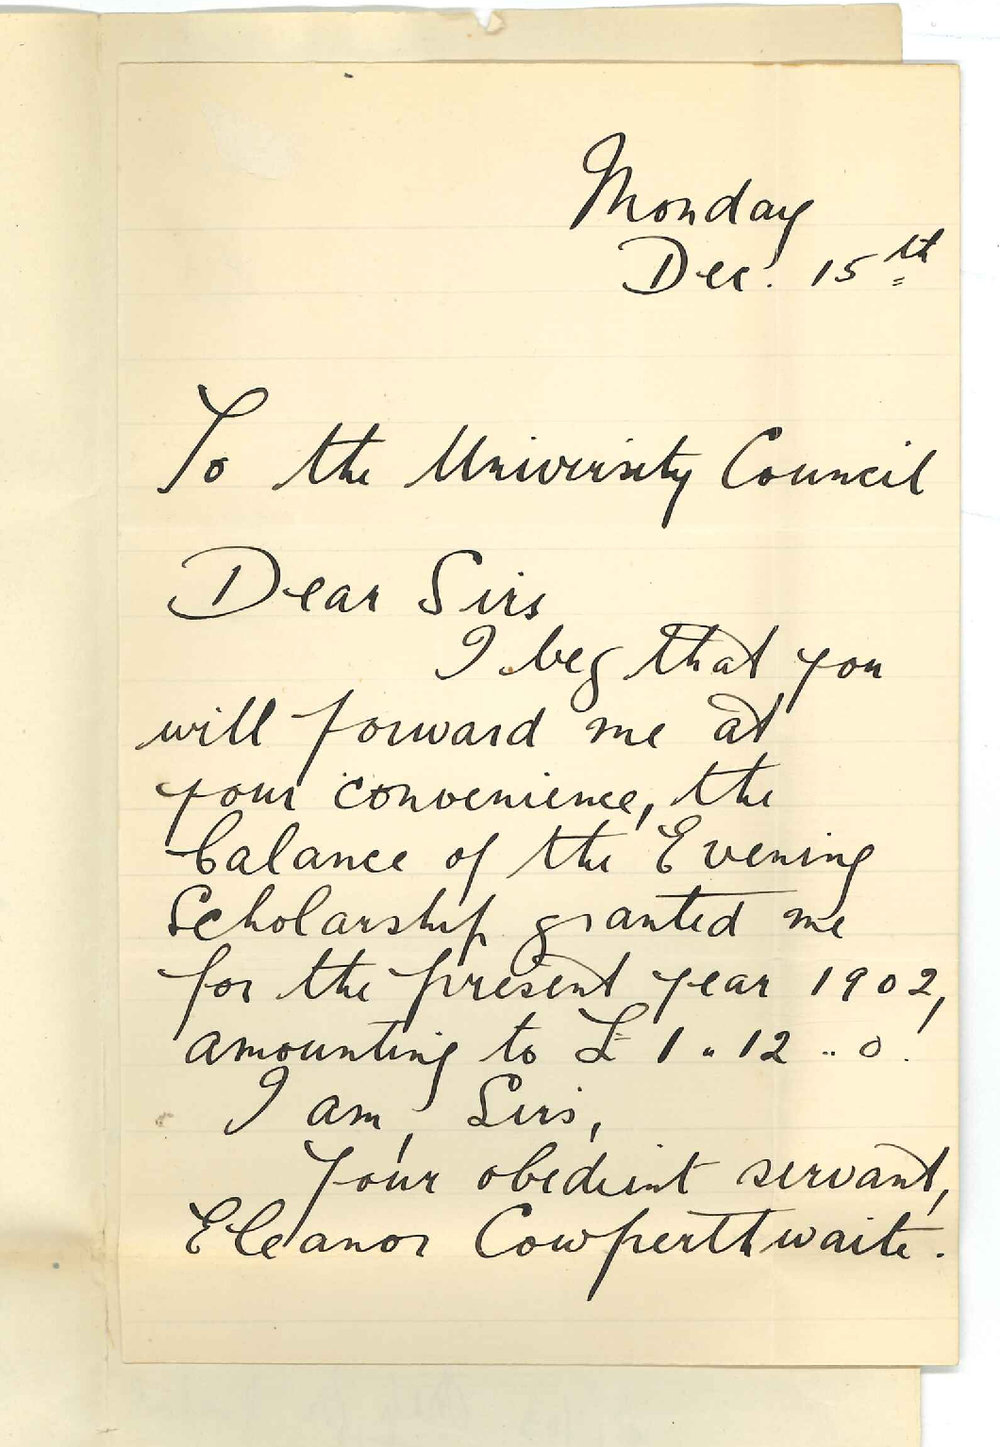 Monday
Dec. 15th
To the University Council
Dear Sirs
I beg that you
will forward me at
your convenience, the
balance of the Evening
Scholarship granted me
for the present year 1902,
amounting to £ 1 .. 12 .. 0.
I am, Sirs,
Your obedient servant,
Eleanor Cowperthwaite.